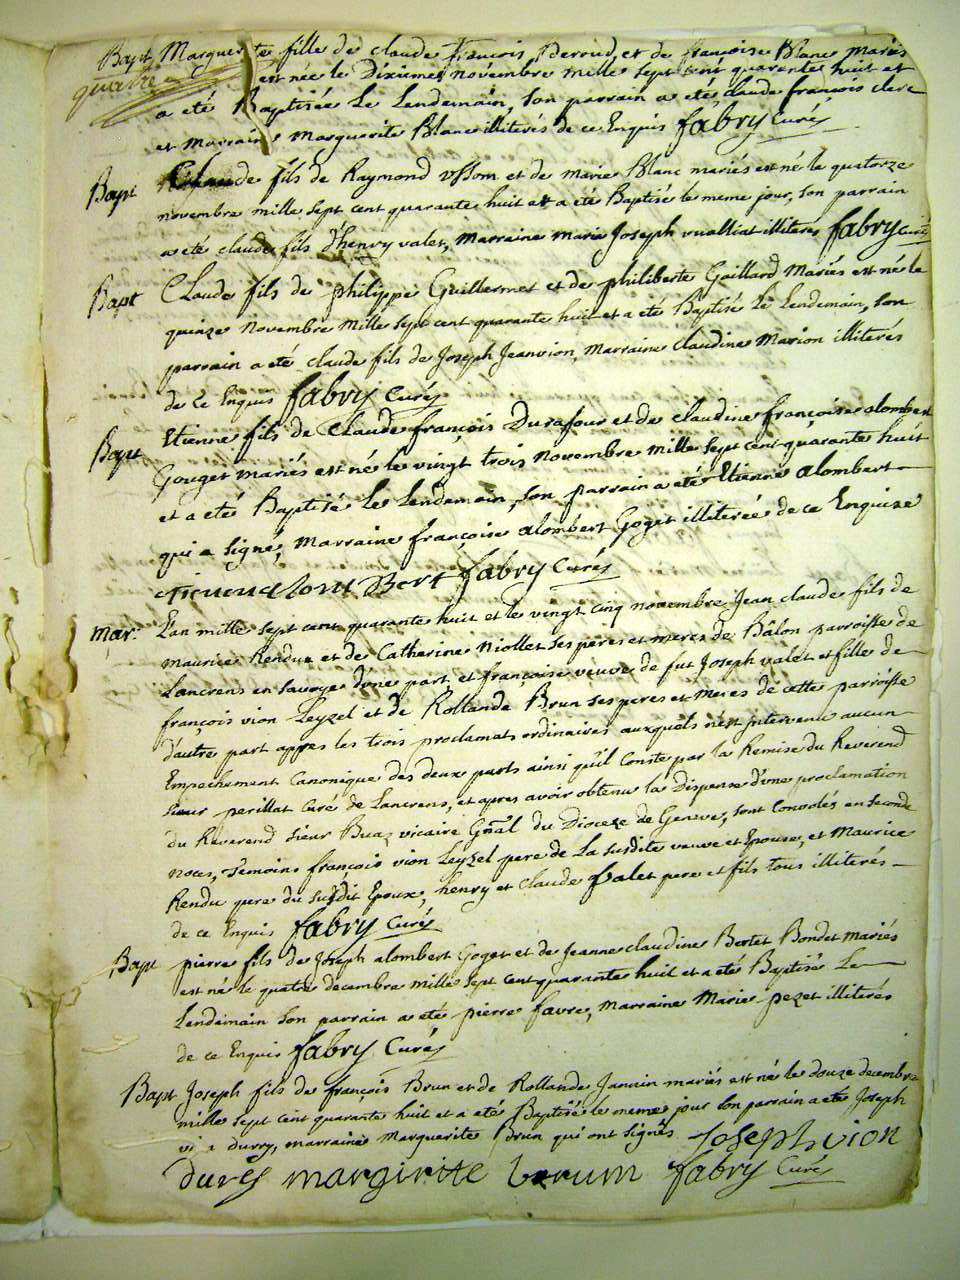 Bapt Marguerite fille de claude francois Perrud et de francoise Blanc mariés
quatre est née le Dixieme novembre mille sept cent quarante huit et
a eté Baptisée Le Lendemain, son parrain a eté claude françois clerc
et marraine marguerite Blanc illiterés de ce Enquis fabry Curé
Bapt Claude fils de Raymond usson et de marie Blanc mariés est né le quatorze
novembre mille sept cent quarante huit et a eté Baptisé le meme jour, son parrain
a eté claude fils d'henry valet, marraine marie Joseph vualliat illiteres fabry curé
Bapt Claude fils de philippe Guillermet et de philiberte Gaillard Mariés est né le
quinze novembre mille sept cent quarante huit et a eté Baptisé Le Lendemain, son
parrain a eté claude fils de Joseph Jeanvion, marraine claudine Marion illiterés
de ce Enquis fabry Curé
Bapt Etienne fils de Claude françois Durafour et de claudine françoise alombert
Gouget mariés est né le vingt trois novembre mille sept cent quarante huit
et a eté Baptisé Le Lendemain, son parrain a eté Etienne alombert
qui a signé, marraine françoise alombert Goget illiterée de ce Enquise
etieneualom Bert fabry Curé
mar: L'an mille sept cent quarante huit et le vingt cinq novembre Jean claude fils de
maurice Rendu et de Catherine Niollet ses peres et meres de Bâlon parroisse de
Lancrens en savoye d'une part, et françoise veuve de fut Joseph valet et fille de
françois vion Leyzel et de Rollande Brun ses peres et meres de cette parroisse
d'autre part appres les trois proclamats ordinaires auxquels n'est Intervenu aucun
Empechement Canonique des deux parts ainsi qu'il Conste par la Remise du Reverend
sieur perillat curé de Lancrens, et apres avoir obtenu la Dispense d'une proclamation
du Reverend sieur Buaz vicaire Gñal du Dioceze de Geneve, sont Conodés en seconde
noces, Temoins françois vion Leyzel pere de La susdite veuve et Epouse, et Maurice
Rendu pere du susdit Epoux, henry et claude valet pere et fils tous illiterés
de ce Enquis fabry Curé
Bapt pierre fils de Joseph alombert Goget et de Jeanne claudine Bertet Bondet mariés
est né le quatre decembre mille sept cent quarante huit et a eté Baptisé Le
Lendemain son parrain a eté pierre favre, marraine Marie pezet illiterés
de ce Enquis fabry Curé
Bapt Joseph fils de françois Brun et de Rollande Jannin mariés est né le douze decembre
mille sept cent quarante huit et a eté Baptisé le meme jour son parrain a eté Joseph
vion durry, marraine Marguerite Brun qui ont signés Joseph vion
durey margirite brum fabry Curé